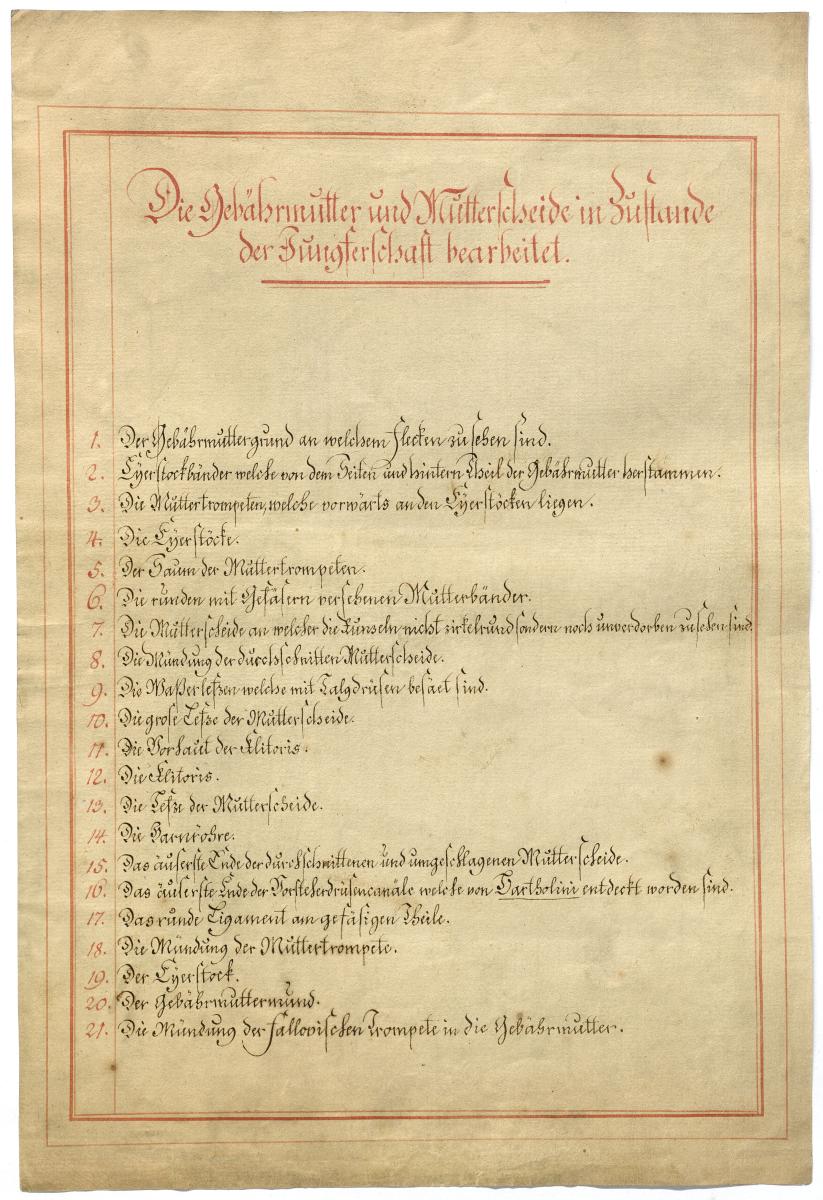 Die Gebährmutter und Mutterscheide in Zustande
der Jungferschaft bearbeitet.
1. Der Gebährmuttergrund an welchem Flecken zu sehen sind.
2. Eyerstockbänder welche von dem Seiten und hintern Theil der Gebährmutter herstammen.
3. Die Muttertrompeten, welche vorwärts an den Eyerstöcken liegen.
4. Die Eyerstöcke.
5. Der Saum der Muttertrompeten.
6. Die runden mit Gefäsern versehenen Mutterbänder.
7. Die Mutterscheide an welcher die Runzeln nicht zirkelrund sondern noch unverdorben zu sehen sind.
8. Die Mündung der durchschnitten Mutterscheide.
9. Die Waßerlefzen welche mit Talgdrüsen besäet sind.
10. Die grose Lefze der Mutterscheide.
11. Die Vorhaut der Klitoris.
12. Die Klitoris.
13. Die Lefze der Mutterscheide.
14. Die Harnröhre.
15. Das äuserste Ende der durchschnittenen und umgeschlagenen Mutterscheide.
16. Das äuserste Ende der Vorsteherdrüsencanäle welche von Bartholini entdeckt worden sind.
17. Das runde Ligament am gefäsigen Theile.
18. Die Mündung der Muttertrompete.
19. Der Eyerstock.
20. Der Gebährmuttermund.
21. Die Mündung der fallopischen Trompete in die Gebährmutter.